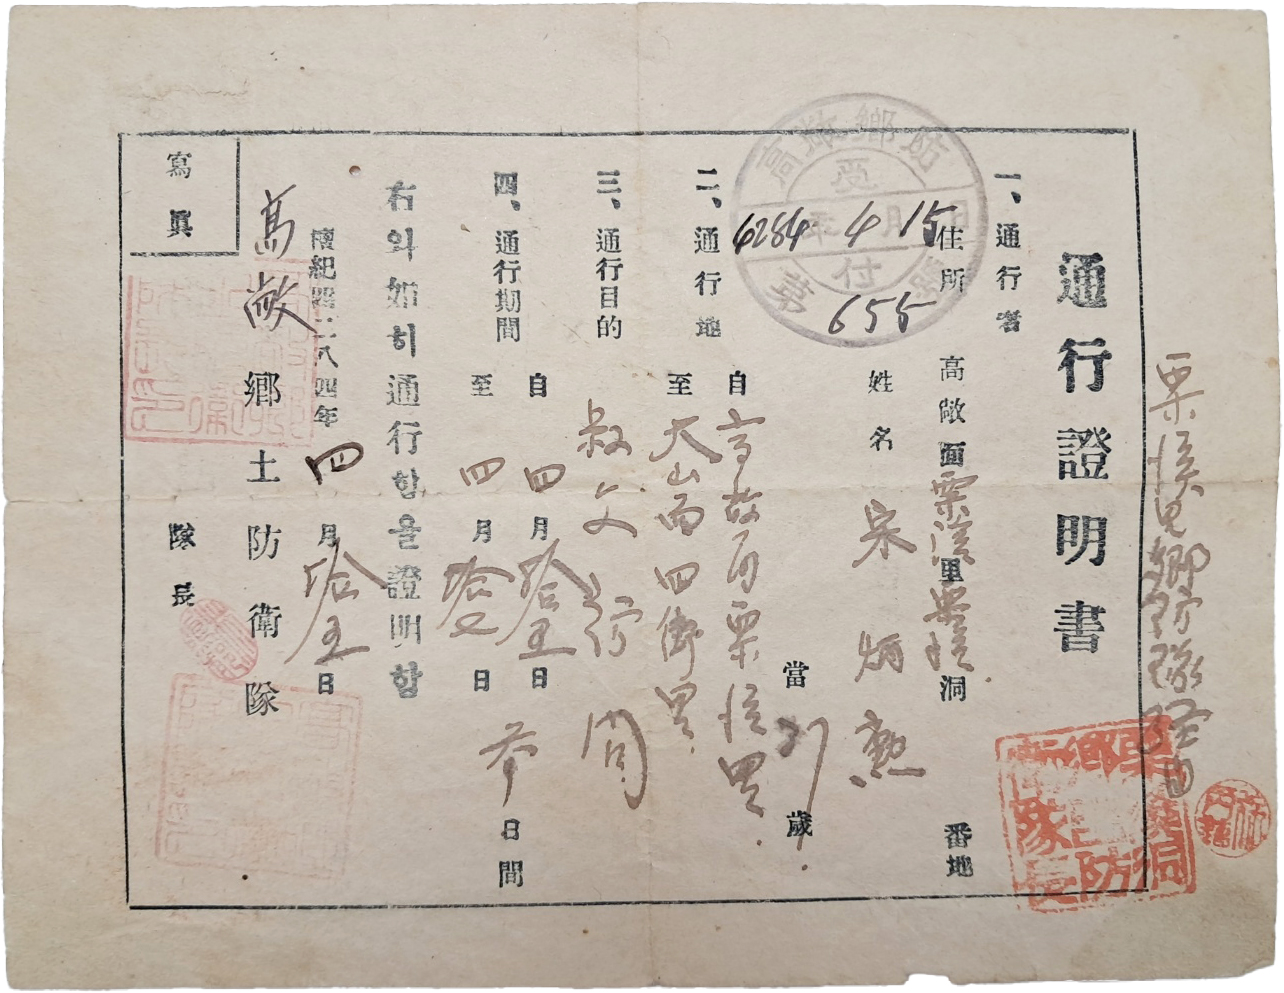 通行證明書
一、通行者
住所 高敞面栗溪里 洞 番地
姓名 宋炳勲 當 21 歲
二、通行地
自 高敞面栗溪里
至 大山面四 里
三、通行目的
叔父 訪問
四、通行期間
自 四月拾五日
至 四月拾七日
参日間
右와如히通行함을證明함
檀紀四二八四年四月拾五日
高敞鄕土防衛隊
隊長
寫眞
高敞鄕防
受付
4284年4月15日
第655號
栗溪里鄕防隊経由